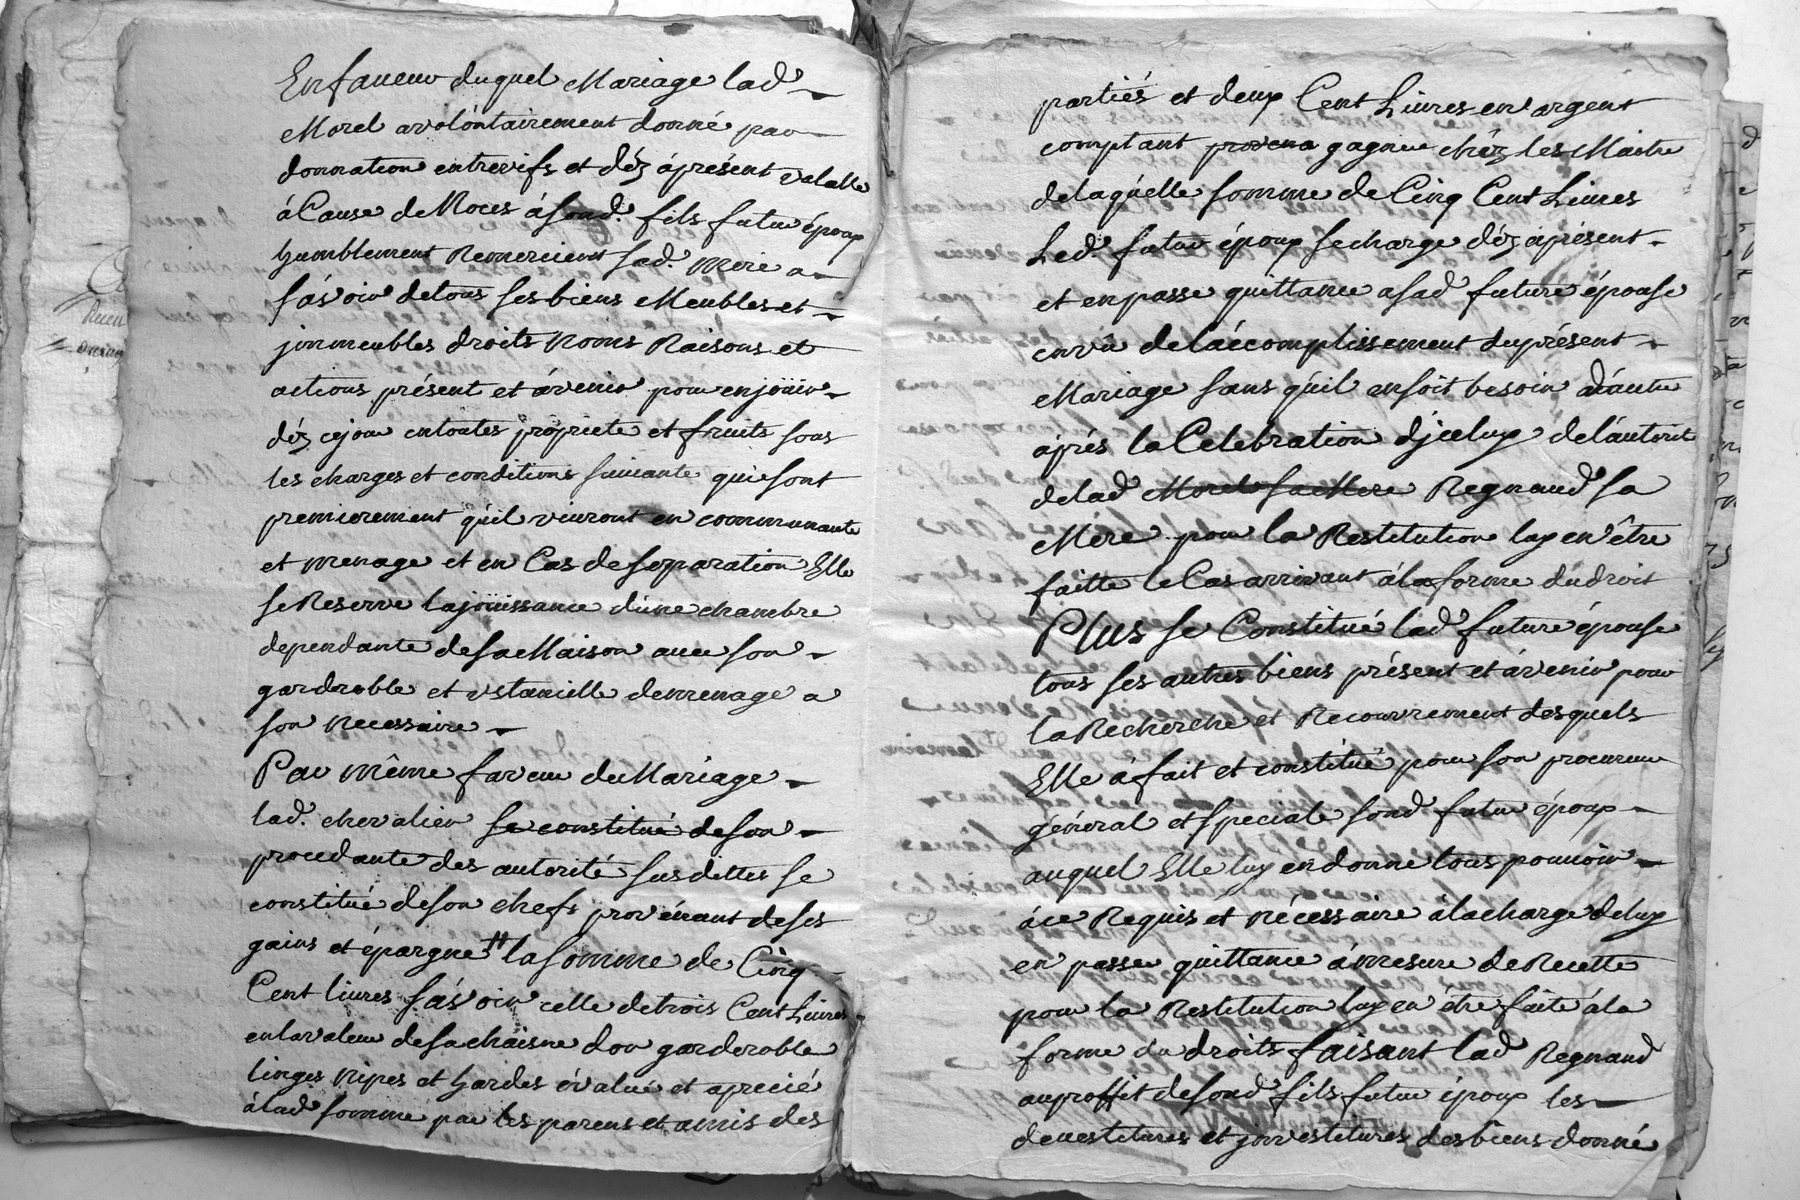 Enfaueur duquel Mariage lad.
Morel avolóntairement donné par
donnation entrevifs et déz áprésent valable
áCause de Noces ásond. fils futur époux
humblement Remerciant sad. mere a
sávoir detous ses biens Meubles et
jmmeubles droits Noms Raisons et
actions présent et ávenir pour enjöüir
déz cejour entoutes propriete et fruits sous
les charges et conditions suiuante qui sont
premierement quil viuront en communauté
et menage et en Cas de separation Elle
se Reserve lajöüissance dúne chambre
dependante desa Maison auec son
garderoble et vstancille demenage a
son necessaire
Par même faveur du Mariage
lad. chevalier se constitué de son
procedante des autorité susdittes se
constitué deson chefs provénant deses
gains et épargne # la somme de Cinq
Cent liures sávoir celle de trois Cent Liures
enlavaleur desachaisne dor garderoble
linges Nipes et hardes évalué et aprecié
álad somme par les parens et amis des
partiés et deux Cent Liures en argent
comptant provena gagnée chéz les Maitre
delaquelle somme de Cinq Cent Liures
Led. futur époux secharge déz aprésent
et enpasse quittance asad future épouse
envü deláccomplissement duprésent
Mariage sans quil ensoit besoin dáutre
áprés la Celebration djcelux delautorité
delad Morel sa Mere Regnaud sa
Mére pour la Restitution luy en être
faitte le Cas arrivant álaforme dudroit
Plus se Constitué lad future épouse
tous ses autres biens présent et ávenir pour
la Recherche et Recouvrement desquels
Elle áfait et constitué pour son procureur
géneral et speciale sond futur époux
auquel Elle luy en donne tous pouuoir
áce Requis et nécessaire álacharge deluy
en passer quittance ámesure de Recette
pour la Restitution luy en être faite ála
forme du droits faisant lad Regnaud
auproffit desond fils futur époux les
deuestitures et jnvestitures des biens donné